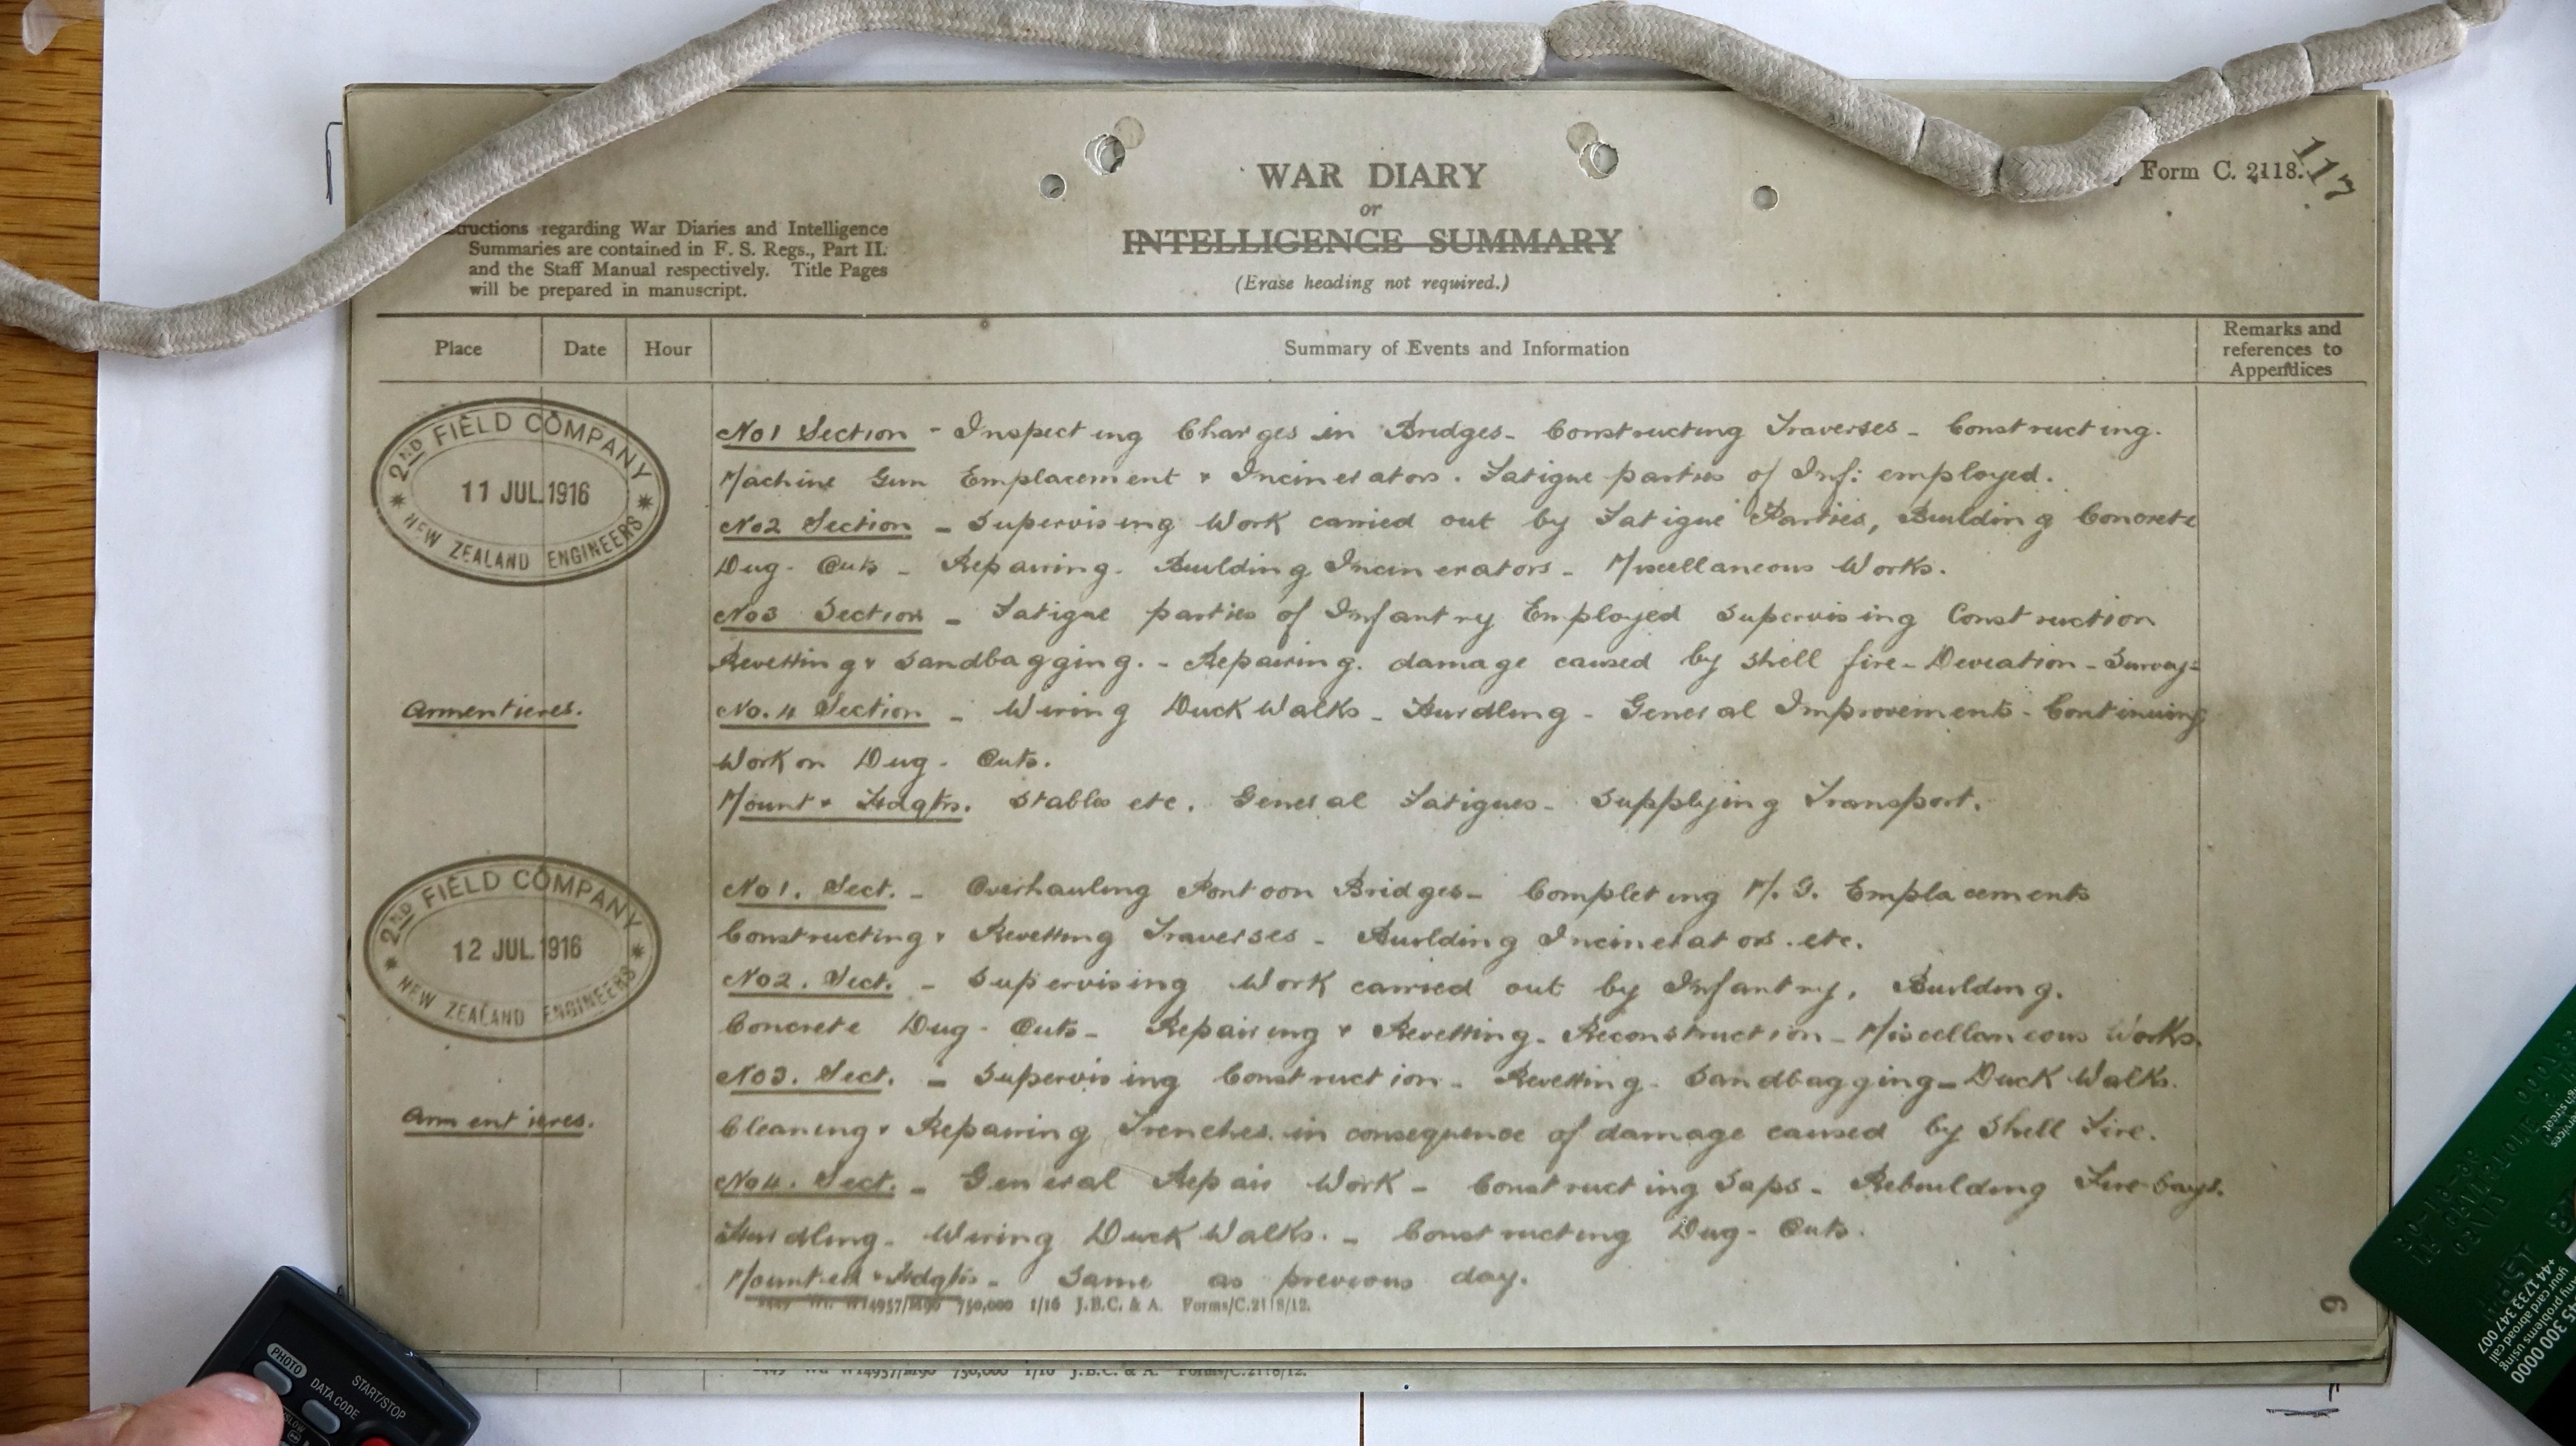 Form C. 2118.
117
WAR DIARY
or
INTELLIGENCE SUMMARY
(Erase heading not required.)
regarding War Diaries and Intelligence
Summaries are contained in F. S. Regs., Part II.
and the Staff Manual respectively. Title Pages
will be prepared in manuscript.
Place Date Hour Summary of Events and Information
Remarks and
references to
Appendices
2ND FIELD COMPANY
11 JUL 1916
NEW ZEALAND ENGINEERS
No1 Section - Inspecting Charges in Bridges - Constructing Traverses - Constructing.
Machine Gun Emplacement & Incinerators. Fatigue parties of Inf: employed.
No2 Section - Supervising Work carried out by Fatigue Parties, Building Concrete
Dug-Outs - Repairing. Building Incinerators - Miscellaneous Works.
No3 Section - Fatigue parties of Infantry Employed Supervising Construction
Revetting & Sandbagging. - Repairing. damage caused by shell fire - Deveation - Survey-
Armentieres.
No. 4 Section - Wiring Duck Walks - Hurdling - General Improvements - Continuing
Work on Dug-Outs.
Mount & Hdqtrs. Stables etc. General Fatigues - Supplying Transport.
2ND FIELD COMPANY
12 JUL 1916
NEW ZEALAND ENGINEERS
No1. Sect. - Overhauling Pontoon Bridges - Completing M. G. Emplacements
Constructing & Revetting Traverses - Building Incinerators. etc.
No2. Sect. - Supervising Work carried out by Infantry, Building.
Concrete Dug-Outs - Repairing & Revetting - Reconstruction - Miscellaneous Works.
No3. Sect. - Supervising Construction - Revetting - Sandbagging - Duck Walks.
Armentieres.
Cleaning & Repairing Trenches. in consequence of damage caused by Shell Fire.
No4. Sect. - General Repair Work - Constructing Saps - Rebuilding Fire-bays.
Hurdling - Wiring Duck Walks. - Constructing Dug-Outs.
Mounted & Hdqtrs - Same as previous day.
750,000 1/16 J.B.C. & A. Forms/C.2118/12.
6
750,000 1/16 J.B.C. & A. Forms/C.2118/12.
PHOTO
DATA CODE
START/STOP
SLOW
+44 1733 347 007